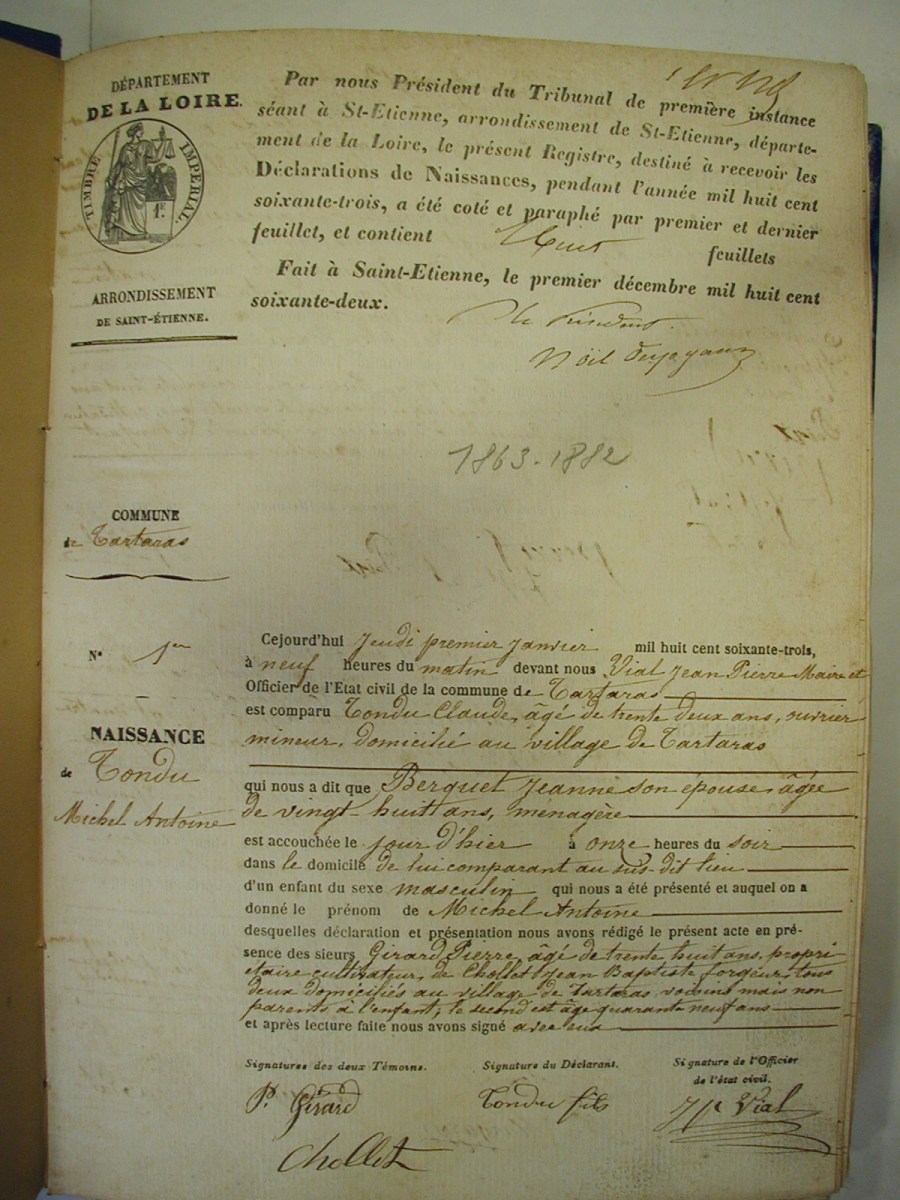 DÉPARTEMENT
DE LA LOIRE.
TIMBRE IMPERIAL.
1F.
ARRONDISSEMENT
DE SAINT-ÉTIENNE.
Par nous Président du Tribunal de première instance
séant à St-Etienne, arrondissement de St-Etienne, départe-
ment de la Loire, le présent Registre, destiné à recevoir les
Déclarations de Naissances, pendant l'année mil huit cent
soixante-trois, a été coté et paraphé par premier et dernier
feuillet, et contient huit feuillets
Fait à Saint-Etienne, le premier décembre mil huit cent
soixante-deux.
Le Président.
1863-1882
COMMUNE
de Tartaras
N° 1er
NAISSANCE
de Tondu
Michel Antoine
Cejourd'hui Jeudi premier Janvier mil huit cent soixante-trois,
à neuf heures du matin devant nous Vial Jean Pierre Maire et
Officier de l'Etat civil de la commune de Tartaras
est comparu Tondu Claude, âgé de trente deux ans, ouvrier
mineur, domicilié au village de Tartaras
qui nous a dit que Berquet Jeanne son épouse âgée
de vingt-huit ans, ménagère
est accouchée le jour d'hier à onze heures du soir
dans le domicile de lui comparant au sus-dit lieu
d'un enfant du sexe masculin qui nous a été présenté et auquel on a
donné le prénom de Michel Antoine
desquelles déclaration et présentation nous avons rédigé le présent acte en pré-
sence des sieurs Girard Pierre, âgé de trente huit ans, propri-
étaire cultivateur, de Chollet Jean Baptiste forgeur, tous
deux domiciliés au village de Tartaras, voisins mais non
parents à l'enfant, le second est âgé quarante neuf ans
et après lecture faite nous avons signé avec eux
Signatures des deux Témoins.
Signature du Déclarant.
Signature de l'Officier
de l'état civil.
P. Girard
Tondu fils
JP Vial
Chollet